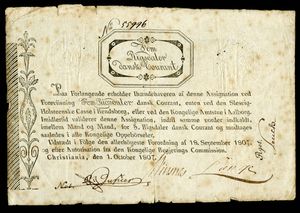 No 55996
Fem
Rigsdaler
dansk Courant
Paa Forlangende erholder Ihændehaveren af denne Assignation ved
Foreviisning Fem Rigsdaler dansk Courant, enten ved den Slesvig-
Holsteenske Casse i Rendsborg, eller ved det Kongelige Amtstue i Aalborg.
Imidlertid validerer denne Assignation, indtil samme vorder indkaldt,
imellem Mand og Mand, for 5. Rigsdaler dansk Courant og modtages
saaledes i alle Kongelige Oppebørseler.
Udstædt i Følge den allerhøieste Forordning af 18. September 1807,
og efter Autorisation fra den Kongelige Regjerings Commission.
Christiania, den 1. October 1807.
Not.